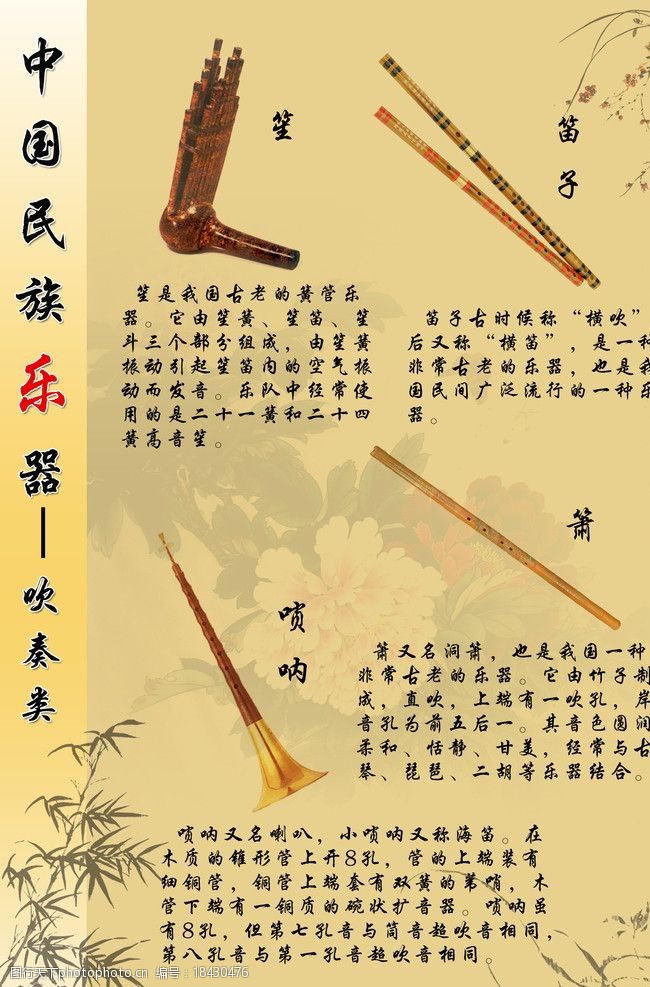 中国民族乐器—吹奏类
笙
笙是我国古老的簧管乐
器。它由笙簧、笙笛、笙
斗三个部分组成，由笙簧
振动引起笙笛内的空气振
动而发音。乐队中经常使
用的是二十一簧和二十四
簧高音笙。
笛子
笛子古时候称“横吹”
后又称“横笛”，是一种
非常古老的乐器，也是我
国民间广泛流行的一种乐
器。
箫
箫又名洞箫，也是我国一种
非常古老的乐器。它由竹子制
成，直吹，上端有一吹孔，岸
音孔为前五后一。其音色圆润
柔和、恬静、甘美，经常与古
琴、琵琶、二胡等乐器结合。
唢呐
唢呐又名喇叭，小唢呐又称海笛。在
木质的锥形管上开8孔，管的上端装有
细铜管，铜管上端套有双簧的苇哨，木
管下端有一铜质的碗状扩音器。唢呐虽
有8孔，但第七孔音与筒音超吹音相同，
第八孔音与第一孔音超吹音相同。
图行天下 photophoto.cn 编号：18430476